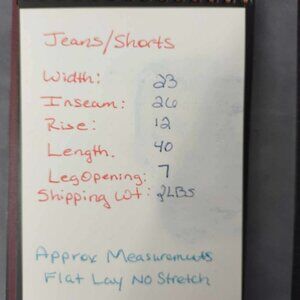 Jeans/Shorts
Width: 23
Inseam: 26
Rise: 12
Length. 40
Leg Opening: 7
Shipping Wt: 2LBS
Approx Measurements
Flat Lay No Stretch